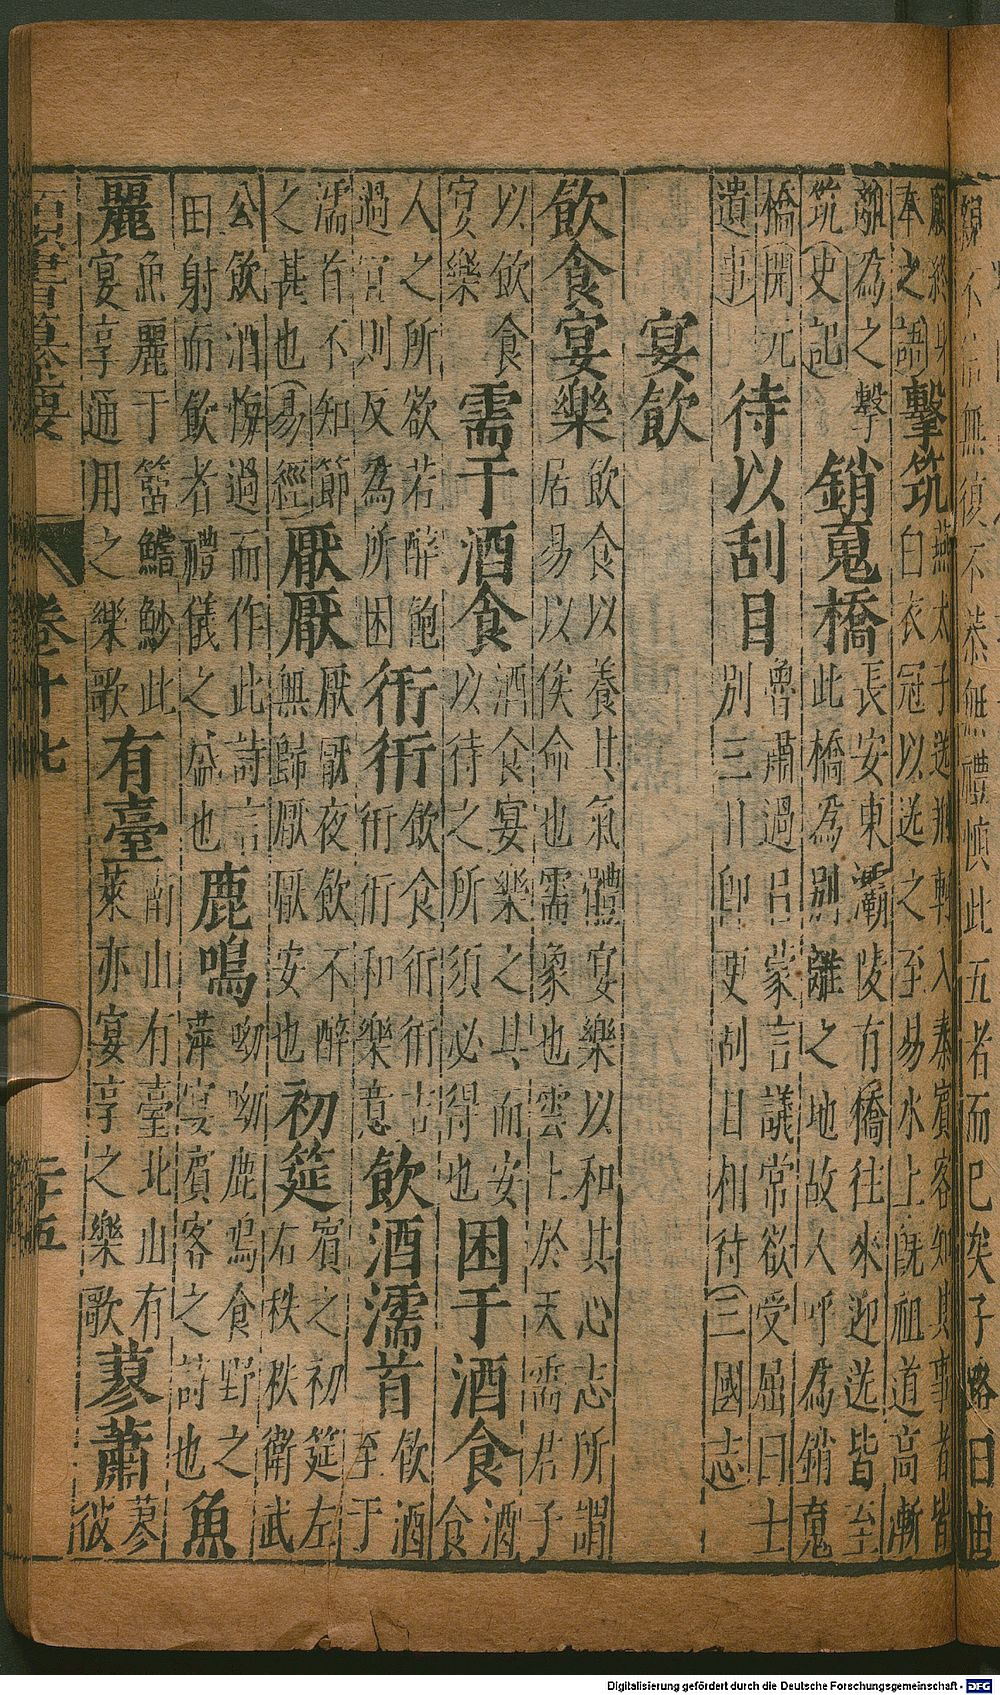 親不信無復不恭無禮慎此五者而已矣子路曰由
願終身
奉之(語)
擊筑
燕太子送荊軻入秦賓客知其事者皆
白衣冠以送之至易水上既祖道高漸
離為之擊
筑(史記)
銷䰟橋
長安東灞陵有橋往來迎送皆至
此橋為別離之地故人呼為銷䰟
橋(開元
遺事)
待以刮目
魯肅過呂蒙言議常欲受屈曰士
別三日即更刮目相待(三國志)
宴飲
飲食宴樂
飲食以養其氣體宴樂以和其心志所謂
居易以俟命也需象也雲上於天需君子
以飲食
宴樂
需于酒食
酒食宴樂之具而安
以待之所須必得也
困于酒食
酒食
人之所欲若醉飽
過宜則反為所困
衎衎
飲食衎衎古
衎衎和樂意
飲酒濡首
飲酒至于
濡首不知節
之甚也(易經)
厭厭
厭厭夜飲不醉
無歸厭厭安也
初筵
賓之初筵左
右秩秩衛武
公飲酒悔過而作此詩言
田射而飲者禮儀之盛也
鹿鳴
呦呦鹿鳴食野之
苹宴賓客之詩也
魚
麗
魚麗于罶鱨鯊此
宴享通用之樂歌
有臺
南山有臺北山有
萊亦宴享之樂歌
蓼蕭
蓼彼
類書纂要 卷十七 二十五
Digitalisierung gefördert durch die Deutsche Forschungsgemeinschaft - DFG